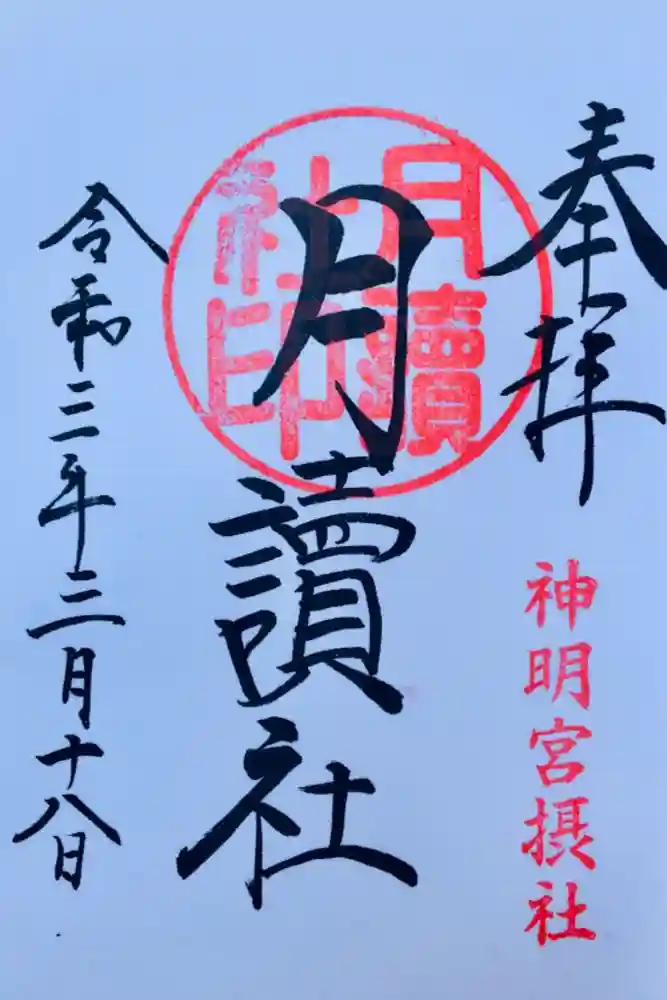 奉拝
神明宮摂社
月讀社
月讀
社印
令和三年三月十八日